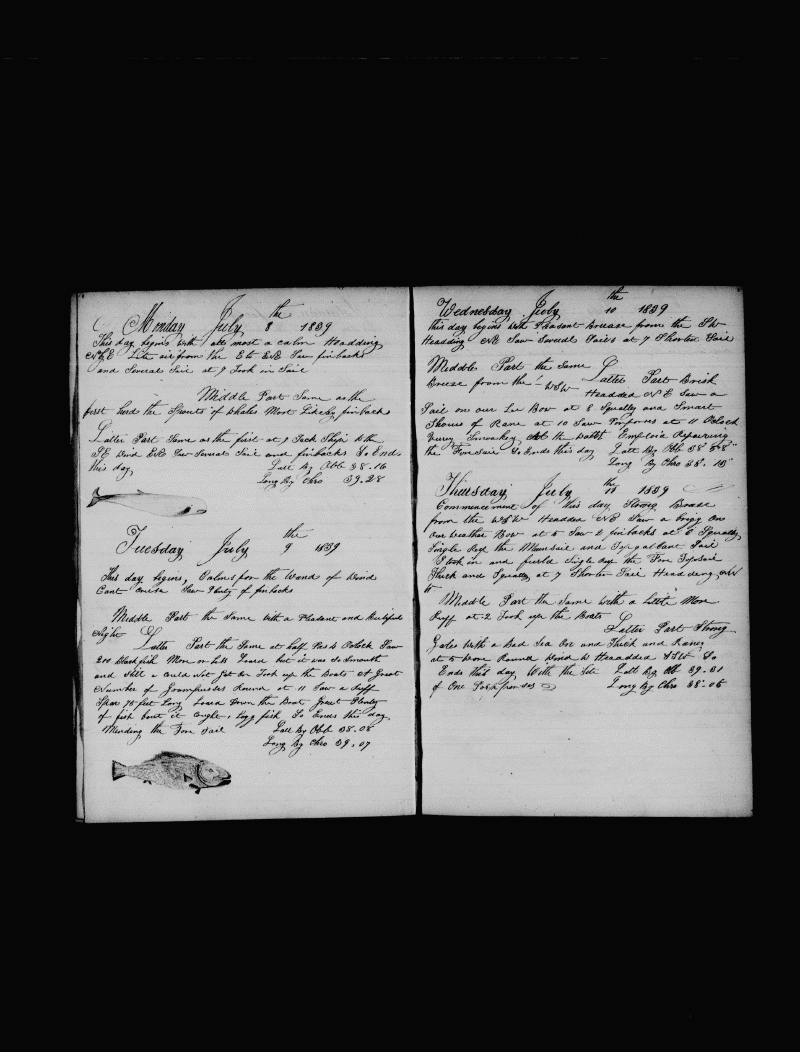 Monday July 8th 1839
This day begins with all most a calm Headding
NNE Lite air from the E to ENE Saw finbacks
and Several Sail at 9 Took in Sail
Middle Part Same as the
first herd the Spouts of Whales Most Likely finbacks
Latter Part Same as the first at 9 Tack Ship to the
SE Wind ENE Saw Several Sail and finbacks So Ends
this day Latt By Obb 38.16
Long By Chro 39.28
Tuesday July 9th 1839
This day begins, Calms for the Want of Wind
Cant cruise Saw Plenty of finbacks
Middle Part the Same with a Pleasant and Beutifull
Night Latter Part the Same at half Past 4 Oclock Saw
200 Blackfish Mon or Less Loard but it was So Smouth
and Still a could Not Get on Took up the Boats A Great
Number of Grampuses Round at 11 Saw a
Spar 75 feet Long Loard Down the Boat Great Plenty
of fish bout it caught 1 Logg fish So Ends this day
Mending the Fore Sail Latt By Obb 38.08
Long By Chro 39.07
Wednesday July 10th 1839
this day begins with Pleasant Brease from the SW
Headding NE Saw Several Sails at 7 Shorten Sail
Middle Part the Same
Breeze from the WSW Latter Part Brisk
Headed NE Saw a
Sail on our Le Bow at 8 Squally and Smart
Showers of Rane at 10 Saw Porposes at 11 Oclock
Verry Smoakey the Emploid Repairing
the Fore Sail So Ends this day Latt By Obb 38.58
Long By Chro 38.15
Thursday July 11th 1839
Commencement of this day Strong Brease
from the WSW Headded NE Saw a brigg on
our Weather Bow at 5 Saw 2 finbacks at 6 Squally
Single Reef the Mainsail and Topgallant Sail
Took in and furld Single Reef the Fore Topsail
Thick and Squally at 7 Shorten Sail Headding NW
to
Middle Part the Same with a Little More
Ruff at 2 Took up the Boats
Latter Part Strong
Gales With a Bad Sea On and Thick and Raney
at 5 Wore Round Wind W Headded SSW So
Ends this day With the Site Latt By Obb 39.31
of One Porpouses Long By Chro 38.05